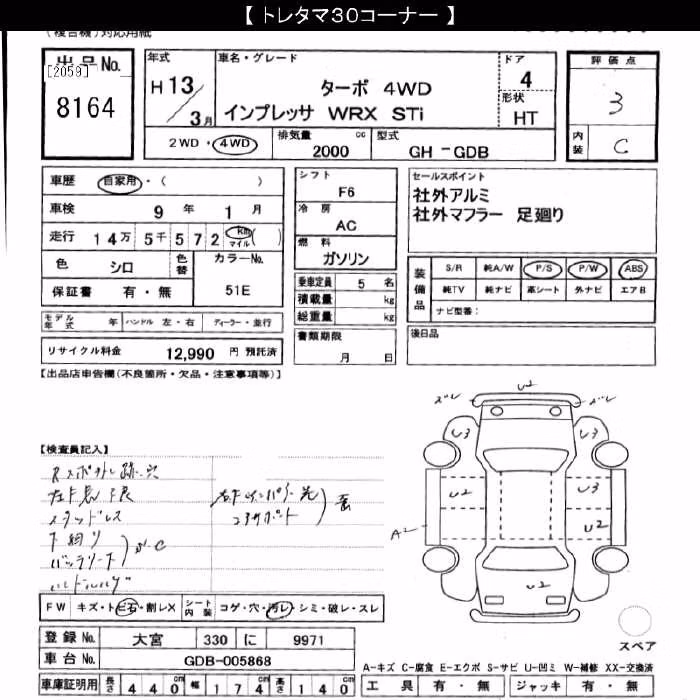 【 トレタマ30コーナー 】
(複合機)対応用紙
出品 No.
[2059]
8164
年式
H 13/3月
車名・グレード
ターボ 4WD
インプレッサ WRX STi
ドア
4
形状
HT
評価点
3
内装
C
2WD・4WD
排気量
cc
2000
型式
GH - GDB
車歴 自家用・( )
車検 9年 1月
走行 14万 5千 572 km マイル ( )
色 シロ
色替
カラーNo.
51E
保証書 有・無
シフト
F6
冷房
AC
燃料
ガソリン
乗車定員 5 名
積載量 kg
総重量 kg
書類期限
月 日
セールスポイント
社外アルミ
社外マフラー 足廻り
装備品
S/R 純A/W P/S P/W ABS
純TV 純ナビ 革シート 外ナビ エアB
ナビ型番:
後日品
モデル年式 年 ハンドル 左・右 ディーラー・並行
リサイクル料金 12,990 円 預託済
【出品店申告欄(不良箇所・欠品・注意事項等)】
【検査員記入】
スタッドレス
U2
U3
U3
U2
U3
A2
U2
U2
FW キズ・トビ石・割レX
シート内装 コゲ・穴・汚レ・シミ・破レ・スレ
登録 No. 大宮 330 に 9971
車台 No. GDB-005868
車庫証明用 長さ 440 幅 174 高さ 140
スペア
A-キズ C-腐食 E-エクボ S-サビ U-凹ミ W-補修 XX-交換済
工具 有・無 ジャッキ 有・無